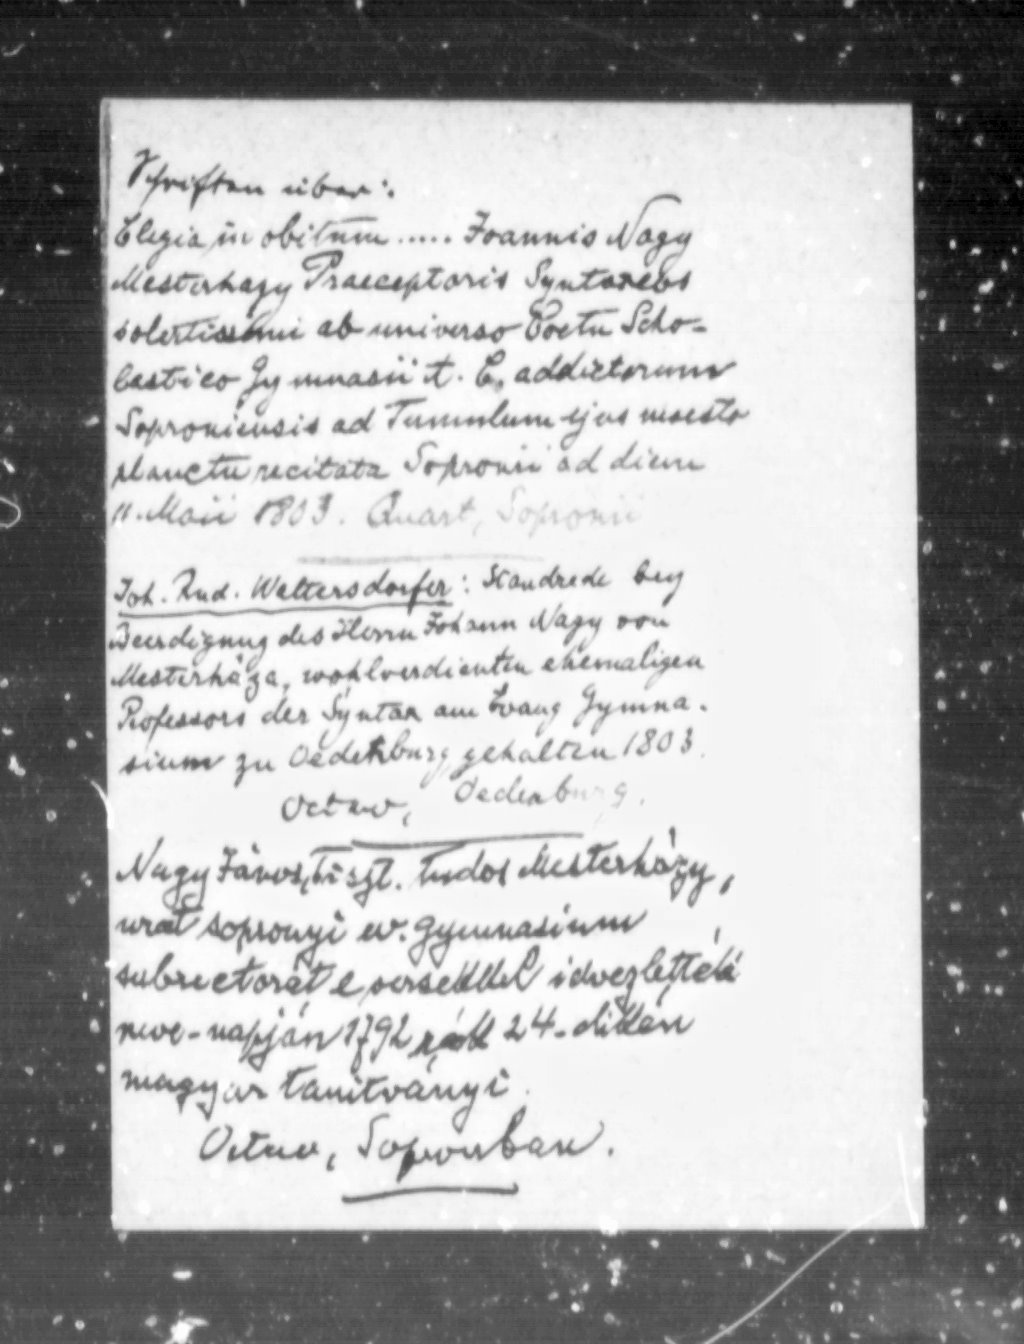 Schriften über:
Elegia in obitum ..... Joannis Nagy
Mesterhazy Praeceptoris Syntaxeos
solertissimi ab universo Coetu Scho-
lastico Gymnasii A. C. addictorum
Soproniensis ad Tumulum ejus moesto
planctu recitata Sopronii ad diem
11. Maii 1803. Quart, Sopronii
Joh. Rud. Waltersdorfer: Standrede bey
Beerdigung des Herrn Johann Nagy von
Mesterháza, wohlverdienten ehemaligen
Professors der Syntax am Evang Gymna-
sium zu Oedenburg, gehalten 1803.
Octav, Oedenburg.
Nagy János, tiszt. tudos Mesterházy,
urat sopronyi ev. gymnasium
subrectorát e versekkel idvezlették
neve-napján 1792 24-dikén
magyar tanitványi.
Octav, Sopronban.